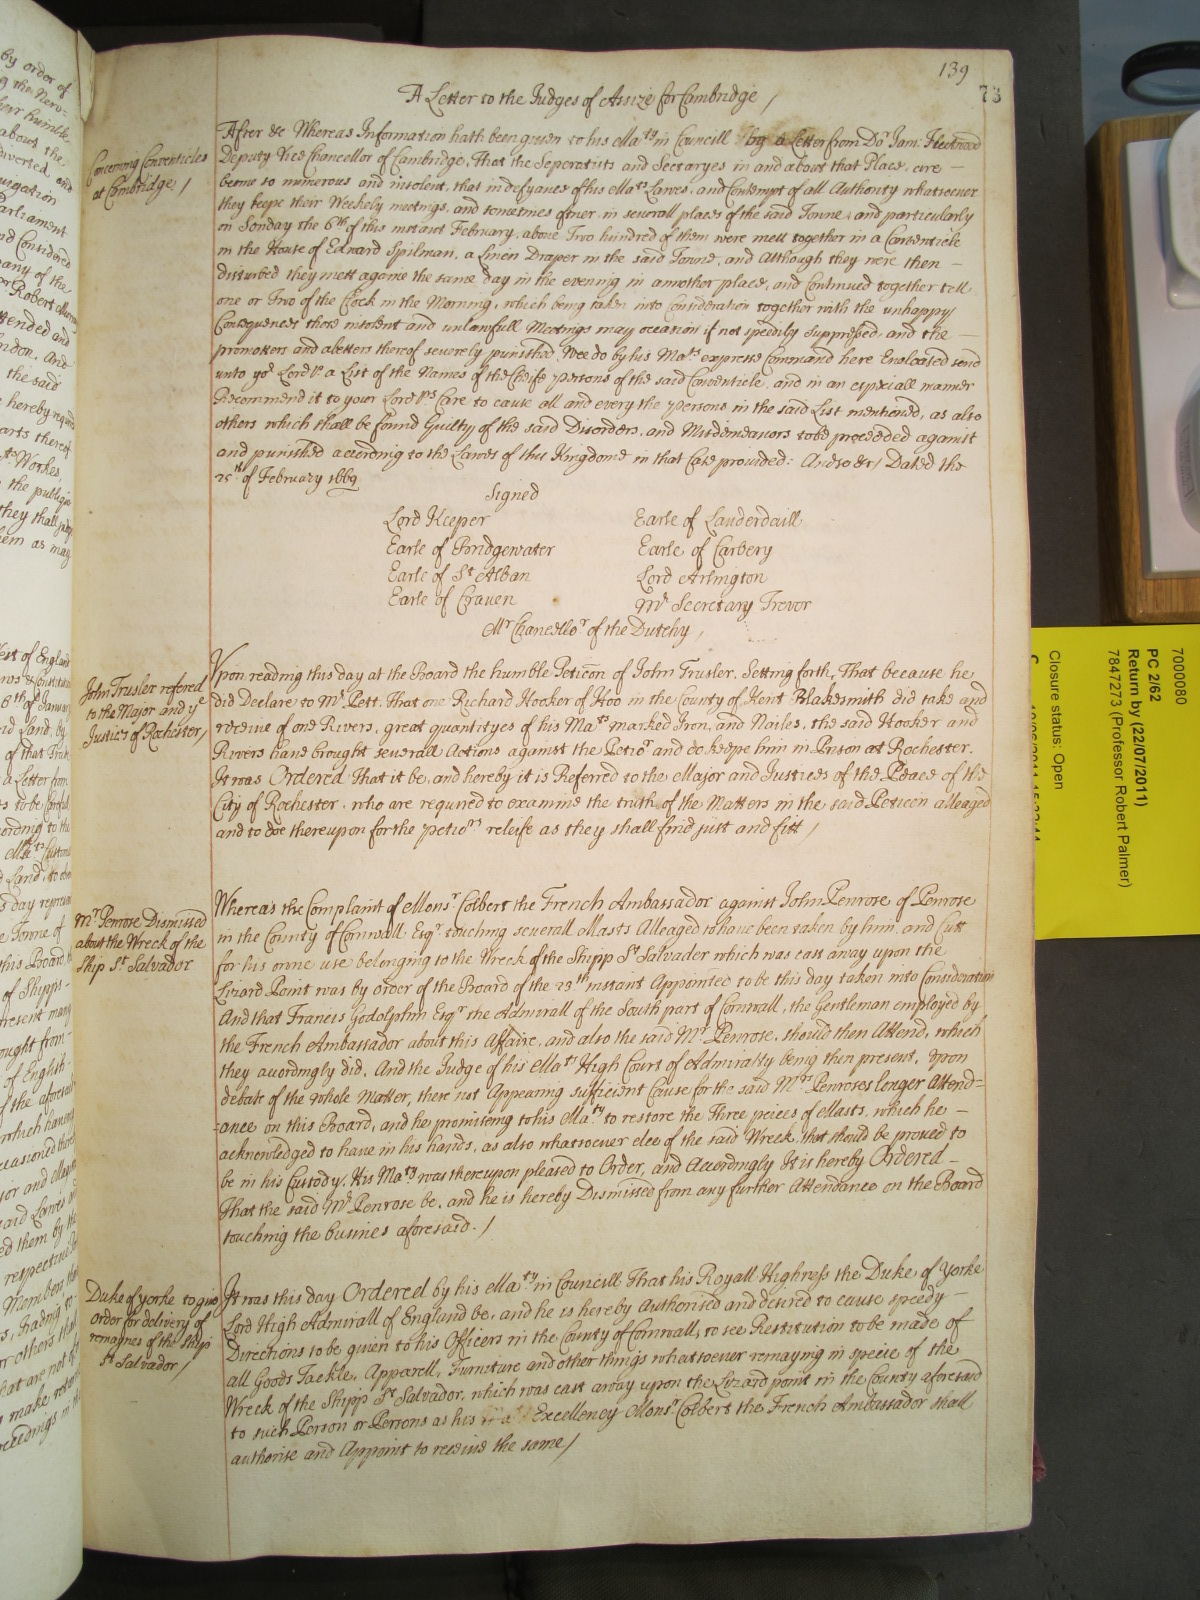 139
73
A Letter to the Judges of Assize for Cambridge /
Concerning Conventicles
at Cambridge /
After &c Whereas Information hath been given to his Ma.ty in Councill by a Letter from Dr. Jam: Fleetwood
Deputy Vice Chancellor of Cambridge, That the Seperatists and Sectaryes in and about that Place, are –
become so numerous and insolent, that in defyance of his Ma.ts Lawes, and Contempt of all Authority whatsoever
they keepe their Weekely meetings, and sometimes oftner, in severall places of the said Towne, and particularly
on Sonday the 6th of this instant February, above Two hundred of them were mett together in a Conventicle
in the House of Edward Spilman, a Linen Draper in the said Towne, and Although they were then –
disturbed they mett againe the same day in the evening in annother place, and Continued together till
one or Two of the Clock in the Morning, which being taken into Consideration together with the unhappy
Consequences those insolent and unlawfull Meetings may occasion if not speedily suppressed, and the –
promoters and abetters thereof severely punished, Wee do by his Ma.ts express Command here Encloased send
unto yor Lordps a List of the Names of the Cheife persons of the said Conventicle, and in an especiall manner
Recommend it to your Lordps Care to cause all and every the persons in the said List mentioned, as also
others which shall be found Guilty of the said Disorders, and Misdemeanors to be proceeded against
and punished according to the Lawes of this Kingdome in that Case provided: And so &c / Dated the
25th of February 1669
Signed
Lord Keeper
Earle of Lauderdaill
Earle of Bridgewater
Earle of Carbery
Earle of St Alban
Lord Arlington
Earle of Craven
Mr Secretary Trevor
Mr Chancellor of the Dutchy /
John Trusler refered
to the Major and ye
Justices of Rochester /
Vpon reading this day at the Board the humble Peticon of John Trusler, Setting forth, That because he
did Declare to Mr Pett, That one Richard Hooker of Hoo in the County of Kent Blakesmith did take and
receive of one Rivers, great quantityes of his Ma.ts marked Iron, and Nailes, the said Hooker and
Rivers have brought severall Actions against the Petior and do keepe him in Prison at Rochester.
It was Ordered That it be, and hereby it is Referred to the Major and Justices of the Peace of the
City of Rochester, who are required to examine the truth of the Matters in the said Peticon alleaged
and to doe thereupon for the petiors releife as they shall find just and fitt /
Mr Penrose Dismissed
about the Wreck of the
Ship St Salvador
Whereas the Complaint of Monsr Colbert the French Ambassador against John Penrose of Penrose
in the County of Cornwall Esqr touching severall Masts Alleaged to have been taken by him, and Cutt
for his owne use belonging to the Wreck of the Shipp St Salvader which was cast away upon the
Lizard Point was by order of the Board of the 23th instant Appointed to be this day taken into Consideration
And that Francis Godolphin Esqr the Admirall of the South part of Cornwall, the Gentleman employed by
the French Ambassador about this Affaire, and also the said Mr Penrose, should then Attend, which
they accordingly did, And the Judge of his Ma.ts High Court of Admiralty being then present, Upon
debate of the whole Matter, there not Appearing sufficient Cause for the said Mr Penroses longer Attend=
=ance on this Board, and he promiseing to his Ma.ty to restore the Three peices of Masts, which he –
acknowledged to have in his hands, as also whatsoever else of the said Wreck, that should be proved to
be in his Custody. His Ma.ty was thereupon pleased to Order, and Accordingly It is hereby Ordered –
That the said Mr Penrose be, and he is hereby Dismissed from any further Attendance on the Board
touching the busines aforesaid. /
Duke of yorke to give
order for delivery of
remaynes of the Ship
St Salvador /
It was this day Ordered by his Ma.ty in Councill That his Royall Highness the Duke of Yorke
Lord High Admirall of England be, and he is hereby Authorised and desired to cause speedy –
Directions to be given to his Officers in the County of Cornwall, to see Restitution to be made of
all Goods Tackle, Apparell, Furniture and other things whatsoever remayning in specie of the
Wreck of the Shipp St Salvador, which was cast away upon the Lizard point in the County aforesaid
to such Person or Persons as his Excellency Monsr Colbert the French Ambassador shall
authorise and Appoint to receive the same /
7000080
PC 2/62
Return by (22/07/2011)
7847273 (Professor Robert Palmer)
Closure status: Open